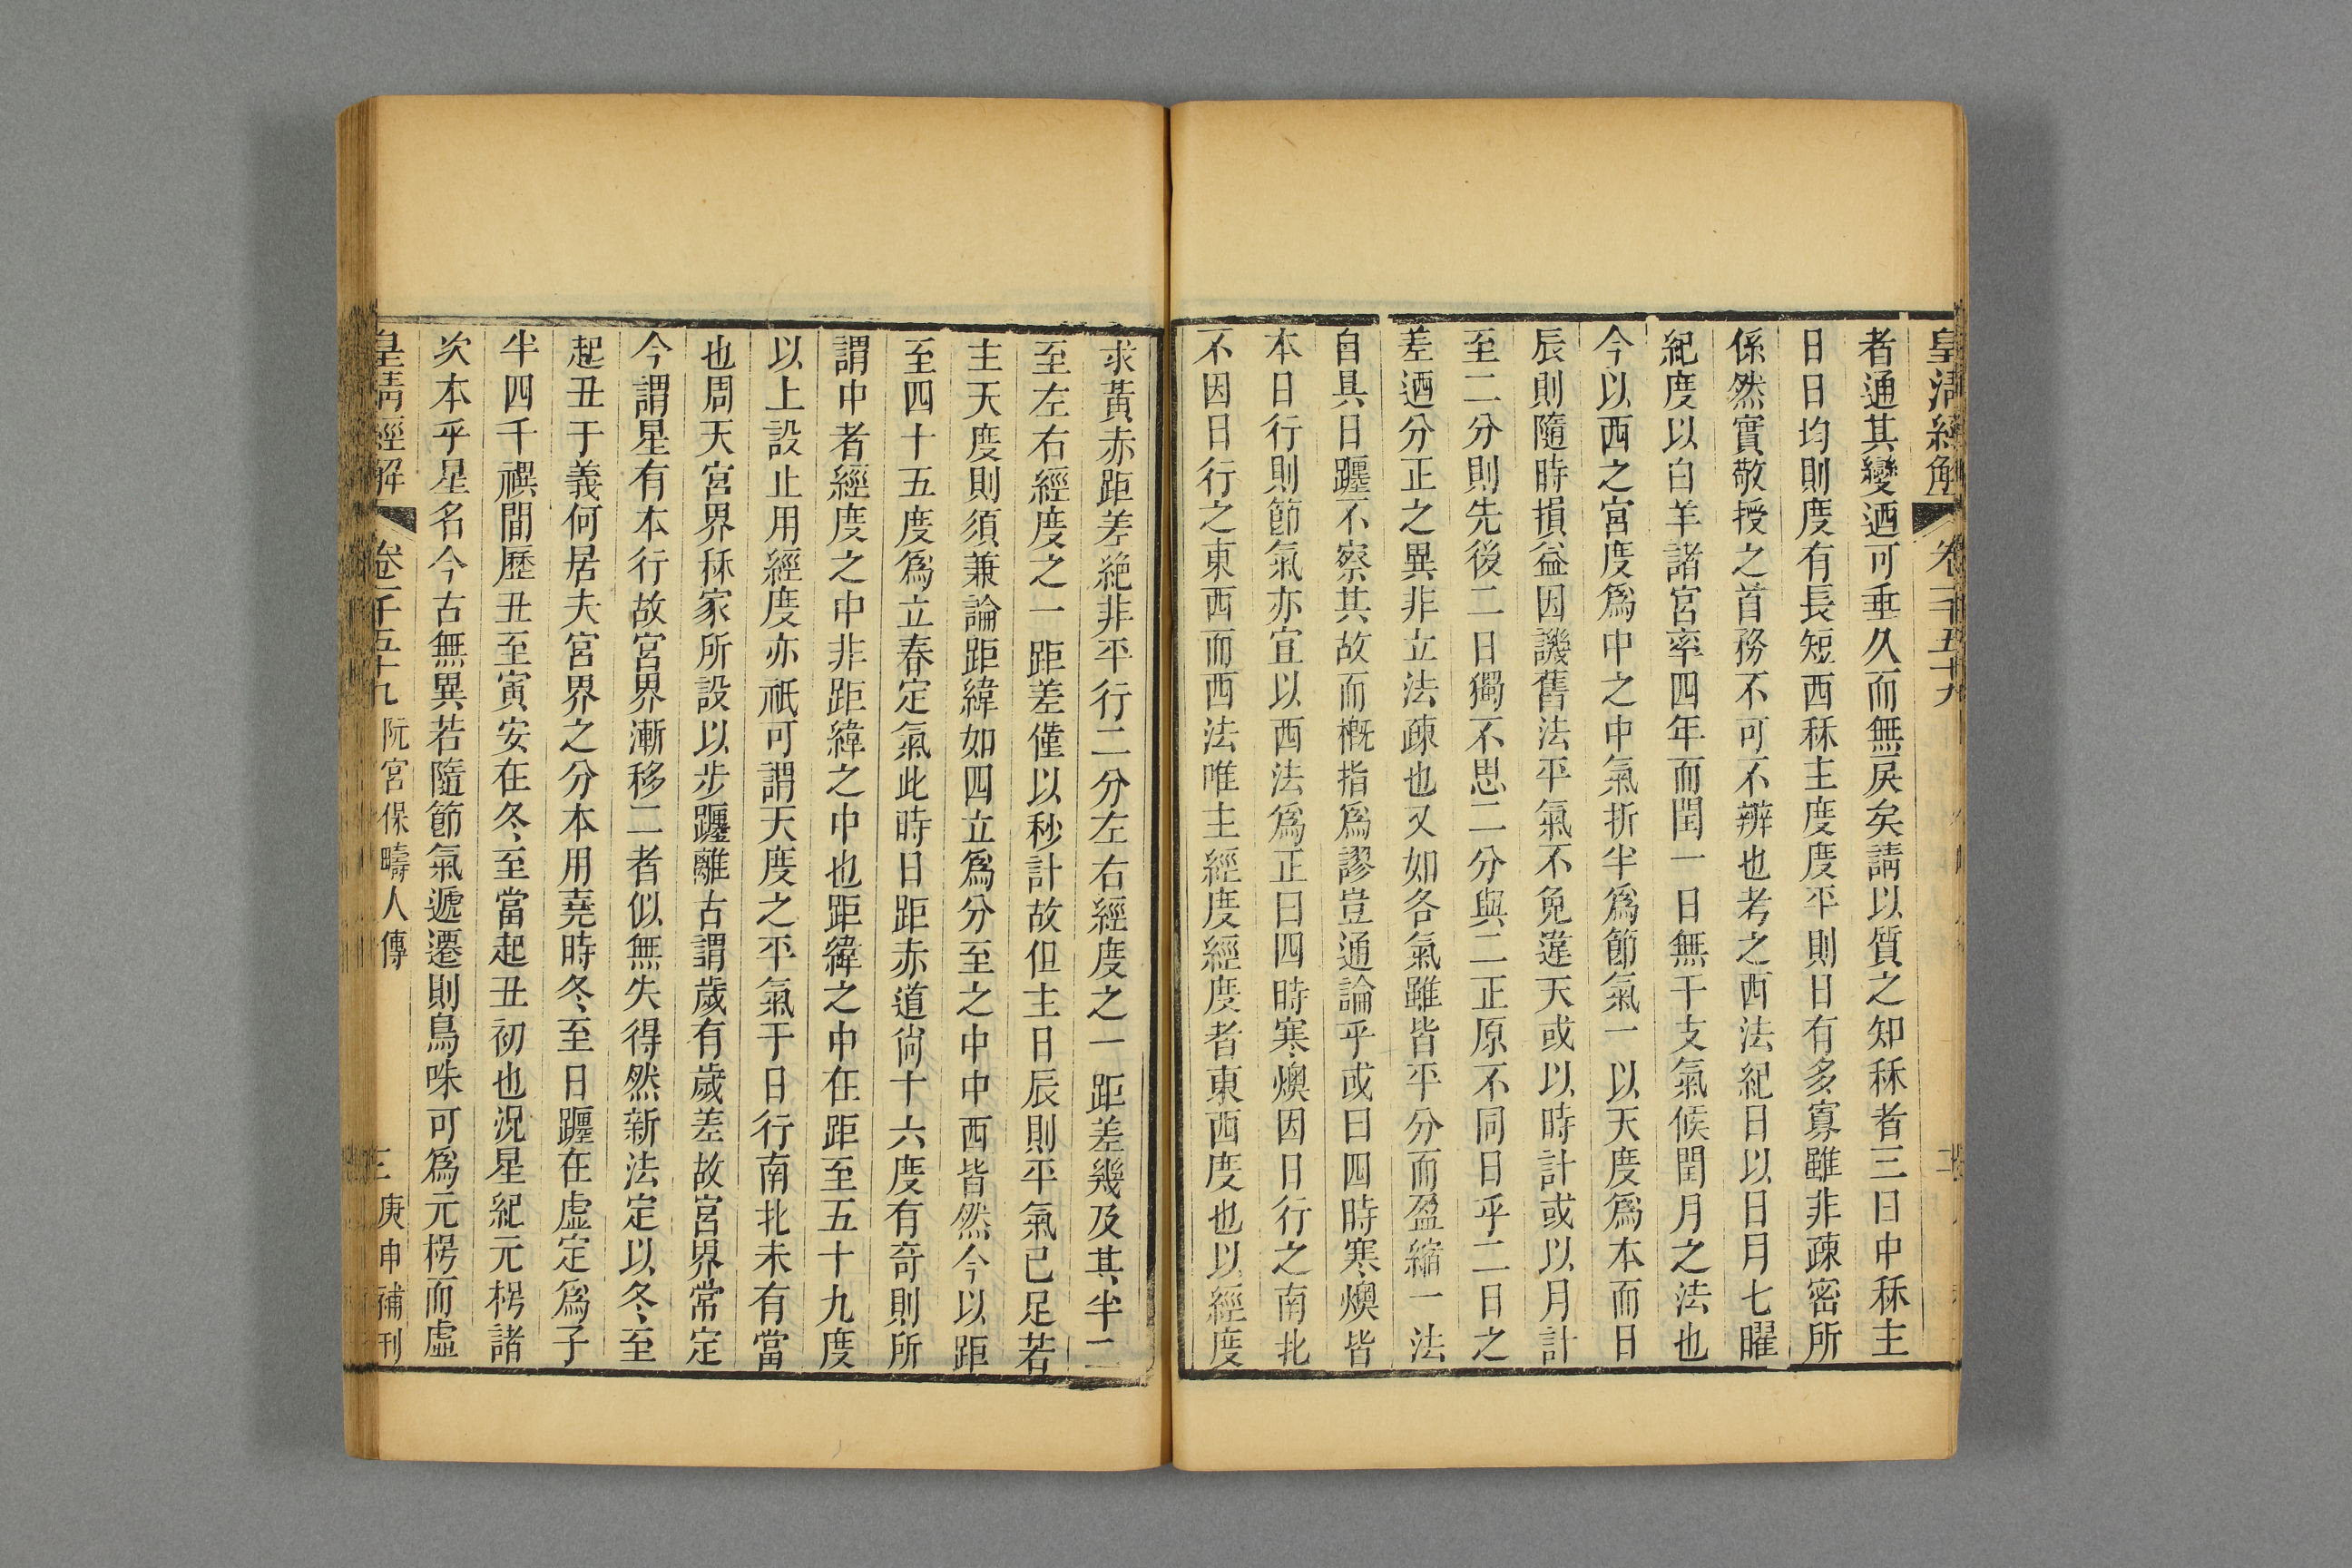 皇清經解 卷一千五十九 二
者通其變迺可垂久而無戾矣請以質之知秝者三曰中秝主
日日均則度有長短西秝主度度平則日有多寡雖非疎密所
係然實敬授之首務不可不辨也考之西法紀日以日月七曜
紀度以白羊諸宮率四年而閏一日無干支氣候閏月之法也
今以西之宮度爲中之中氣折半爲節氣一以天度爲本而日
辰則隨時損益因譏舊法平氣不免違天或以時計或以月計
至二分則先後二日獨不思二分與二正原不同日乎二日之
差迺分正之異非立法疎也又如各氣雖皆平分而盈縮一法
自具日躔不察其故而槪指爲謬豈通論乎或曰四時寒燠皆
本日行則節氣亦宜以西法爲正曰四時寒燠因日行之南北
不因日行之東西而西法唯主經度經度者東西度也以經度
求黃赤距差絶非平行二分左右經度之一距差幾及其半二
至左右經度之一距差僅以秒計故但主日辰則平氣已足若
主天度則須兼論距緯如四立爲分至之中中西皆然今以距
至四十五度爲立春定氣此時日距赤道尙十六度有奇則所
謂中者經度之中非距緯之中也距緯之中在距至五十九度
以上設止用經度亦祇可謂天度之平氣于日行南北未有當
也周天宮界秝家所設以步躔離古謂歲有歲差故宮界常定
今謂星有本行故宮界漸移二者似無失得然新法定以冬至
起丑于義何居夫宮界之分本用堯時冬至日躔在虛定爲子
半四千禩間歷丑至寅安在冬至當起丑初也況星紀元枵諸
次本乎星名今古無異若隨節氣遞遷則鳥咮可爲元枵而虛
皇淸經解 卷一千五十九 阮宮保疇人傳 三 庚申補刊